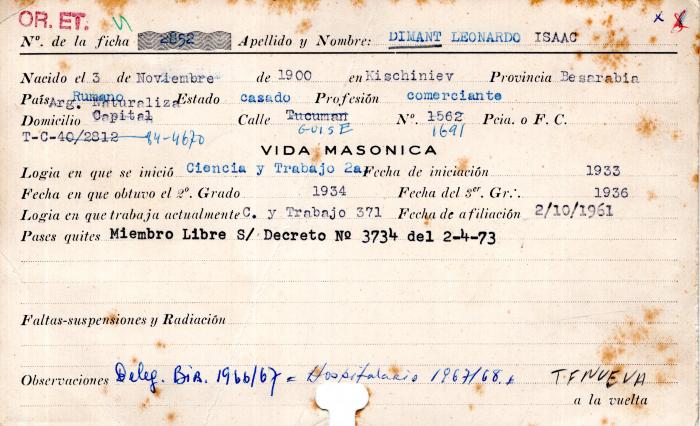 OR. ET.
Nº. de la ficha 2852 Apellido y Nombre: DIMANT LEONARDO ISAAC
Nacido el 3 de Noviembre de 1900 en Kischiniev Provincia Besarabia
País Rumano Arg. Naturaliza Estado casado Profesión comerciante
Domicilio Capital Calle Tucuman Nº. 1562 Pcia. o F. C.
T-C-40/2812 84-4670 GUISE 1691
VIDA MASONICA
Logia en que se inició Ciencia y Trabajo 2a Fecha de iniciación 1933
Fecha en que obtuvo el 2º. Grado 1934 Fecha del 3er. Gr∴. 1936
Logia en que trabaja actualmente C. y Trabajo 371 Fecha de afiliación 2/10/1961
Pases quites Miembro Libre S/ Decreto Nº 3734 del 2-4-73
Faltas-suspensiones y Radiación
Observaciones Deleg. Bib. 1966/67 = Hospitalario 1967/68.+ T.F NUEVA
a la vuelta